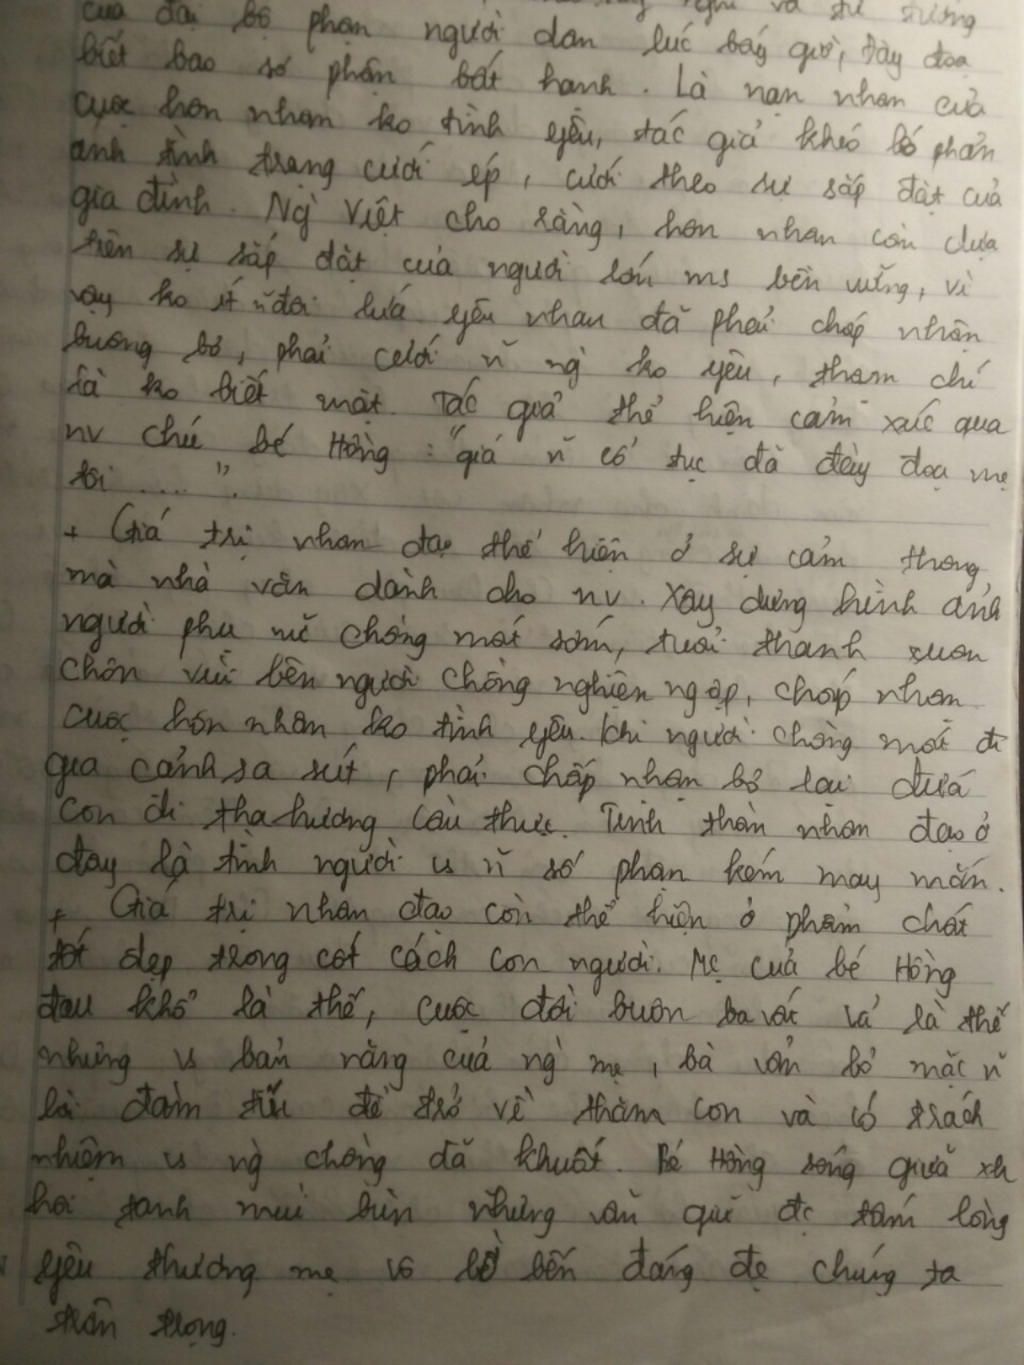 của đại bộ phận người dân lúc bấy giờ, đày đoạ
biết bao số phận bất hạnh. Là nạn nhân của
cuộc hôn nhân ko tình yêu, tác giả khéo léo phản
ánh tình trạng cưới ép, cưới theo sự sắp đặt của
gia đình. Ng` Việt cho rằng, hôn nhân còn dựa
trên sự sắp đặt của người lớn ms bền vững, vì
vậy ko ít ~ đôi lứa yêu nhau đã phải chấp nhận
buông bỏ, phải cưới ~ ng` ko yêu, thậm chí
là ko biết mặt. Tác giả thể hiện cảm xúc qua
nv chú bé Hồng : "giá ~ cổ tục đã đày đoạ mẹ
tôi .... ".
+ Giá trị nhân đạo thể hiện ở sự cảm thông
mà nhà văn dành cho nv. Xây dựng hình ảnh
người phụ nữ chồng mất sớm, tuổi thanh xuân
chôn vùi bên người chồng nghiện ngập, chấp nhận
cuộc hôn nhân ko tình yêu. Khi người chồng mất đi
gia cảnh sa sút, phải chấp nhận bỏ lại đứa
con đi tha hương cầu thực. Tinh thần nhân đạo ở
đây là tình người vs ~ số phận kém may mắn.
+ Giá trị nhân đạo còn thể hiện ở phẩm chất
tốt đẹp trong cốt cách con người. Mẹ của bé Hồng
đau khổ là thế, cuộc đời buôn ba vất vả là thế
nhưng vs bản năng của ng` mẹ, bà vẫn bỏ mặc ~
lời đàm tiếu để trở về thăm con và có trách
nhiệm vs ng` chồng đã khuất. Bé Hồng sống giữa xh
hôi tanh mùi bùn nhưng vẫn giữ đc tấm lòng
yêu thương mẹ vô bờ bến đáng để chúng ta
trân trọng.